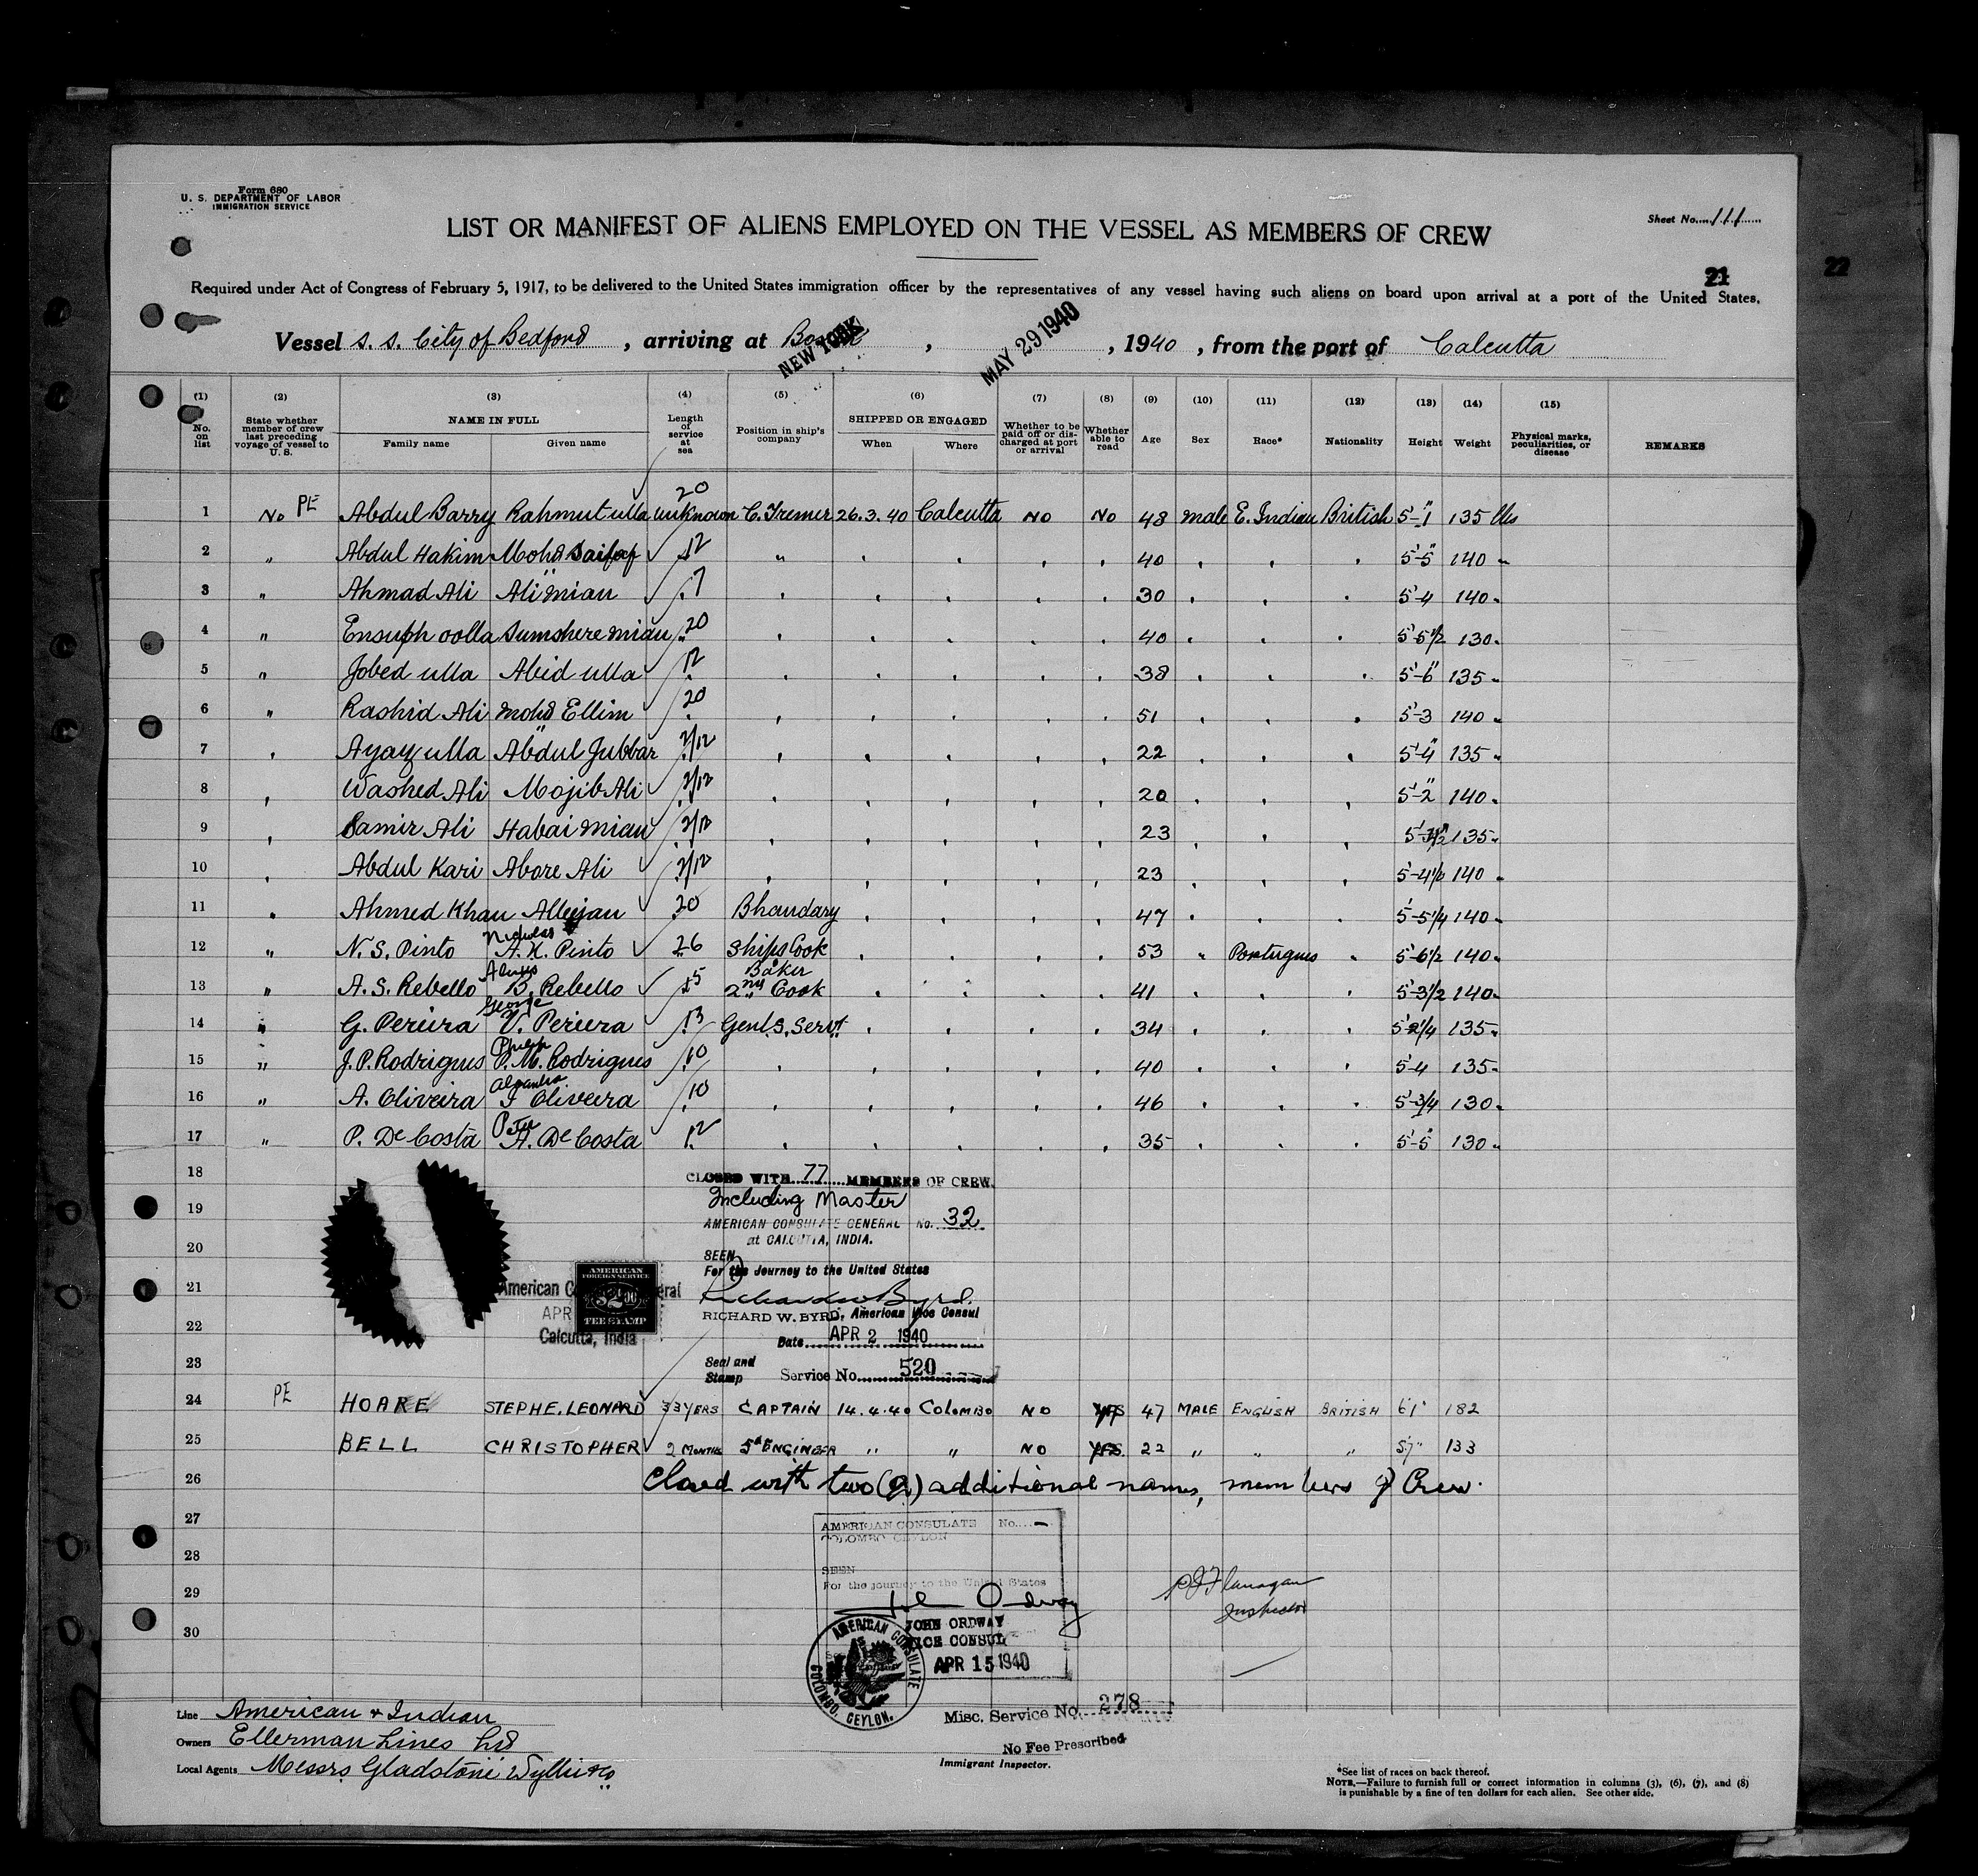 Form 680
U. S. DEPARTMENT OF LABOR
IMMIGRATION SERVICE
Sheet No. 111
LIST OR MANIFEST OF ALIENS EMPLOYED ON THE VESSEL AS MEMBERS OF CREW
21
22
Required under Act of Congress of February 5, 1917, to be delivered to the United States immigration officer by the representatives of any vessel having such aliens on board upon arrival at a port of the United States.
Vessel S. S. City of Bedford, arriving at NEW YORK, MAY 29 1940, 1940, from the port of Calcutta
(1) (2) (3) (4) (5) (6) (7) (8) (9) (10) (11) (12) (13) (14) (15)
No. on list
State whether member of crew last preceding voyage of vessel to U. S.
NAME IN FULL
Family name Given name
Length of service at sea
Position in ship's company
SHIPPED OR ENGAGED
When Where
Whether to be paid off or discharged at port or arrival
Whether able to read
Age Sex Race* Nationality Height Weight
Physical marks, peculiarities, or disease
REMARKS
1 No PE Abdul Barry Rahmut ulla 20 unknown 26.3.40 Calcutta No No 48 male E. Indian British 5'-1" 135 lbs
2 " Abdul Hakim Mohd 12 " 40 5'-5" 140 "
3 " Ahmad Ali Ali mian 7 30 5'4 140 "
4 " Ensuph oolla Sumshere mian 20 40 5'5½ 130 "
5 " Jobed ulla Abid ulla 12 38 5'-6" 135 "
6 " Rashid Ali Mohd Ellim 20 51 5'-3 140 "
7 " Ayaz ulla Abdul Jubbar 2/12 22 5'-4" 135 "
8 " Washed Ali Mojib Ali 2/12 20 5'-2" 140 "
9 " Samir Ali Habai mian 2/12 23 135 "
10 " Abdul Kari Abore Ali 2/12 23 140 "
11 " Ahmed Khan Alleejan 20 Bhandary 47 5'-5¼ 140 "
12 " N. S. Pinto Nicholas Pinto 26 Ships Cook 53 " Portugues 5'-6½ 140 "
13 " A. S. Rebello B. Rebello 15 Baker 2nd Cook 41 5'-3½ 140 "
14 " G. Pereira George V. Periera 13 Genl. S. Servt. 34 135 "
15 " J. P. Rodrigues P. M. Rodrigues 10 40 5'-4 135 "
16 " A. Oliveira Oliveira 10 46 130 "
17 " P. De Costa Peter De Costa 12 35 5'-5" 130 "
18
CLOSED WITH 77 MEMBERS OF CREW.
Including Master
19
AMERICAN CONSULATE GENERAL No. 32
at CALCUTTA, INDIA.
20
SEEN
For the Journey to the United States
21
American Co eral
APR
Calcutta, India
AMERICAN
FOREIGN SERVICE
$2.00
FEE STAMP
Richard W Byrd.
RICHARD W. BYRD, American Vice Consul
22
Date APR 2 1940
23
Seal and Stamp Service No. 520
24 PE HOARE STEPHE. LEONARD 33 YERS CAPTAIN 14.4.40 COLOMBO NO YES 47 MALE ENGLISH BRITISH 6'1" 182
25 BELL CHRISTOPHER 2 MONTHS 5th ENGINEER " " NO YES 22 " " " 5'7" 133
26 Closed with two (2) additional names, members of Crew.
27
AMERICAN CONSULATE No. -
COLOMBO CEYLON
28
SEEN
For the journey to the United States
29
John Ordway
JOHN ORDWAY
VICE CONSUL
APR 15 1940
30
AMERICAN CONSULATE
COLOMBO, CEYLON.
Flanagan
Inspector
Misc. Service No. 278
No Fee Prescribed
Immigrant Inspector.
Line American & Indian
Owners Ellerman Lines Ltd
Local Agents Messrs Gladstone Wyllie & Co
*See list of races on back thereof.
NOTE.—Failure to furnish full or correct information in columns (3), (6), (7), and (8)
is punishable by a fine of ten dollars for each alien. See other side.